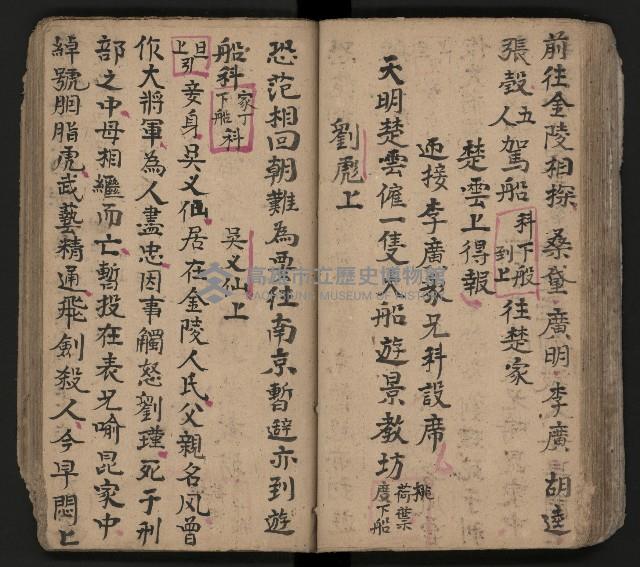 前往金陵相探 桑黛 廣明 李廣 胡逵
張穀人五駕船 科下般到上 往楚家
楚雲上得報
迎接李廣家兄科設席
天明楚雲僱一隻大船遊景教坊 桃荷葉度下船
劉彪上
恐范相回朝難為再往南京暫避亦到遊
船科 家丁科下船 吳又仙上
旦上引 妾身吳又仙居在金陵人氏父親名风曾
作大將軍為人盡忠因事觸怒劉瑾死于刑
部之中母相繼而亡暫投在表兄喻昆家中
綽號胭脂虎武藝精通飛劍殺人今早悶上
高雄市立歷史博物館
KAOHSIUNG MUSEUM OF HISTORY